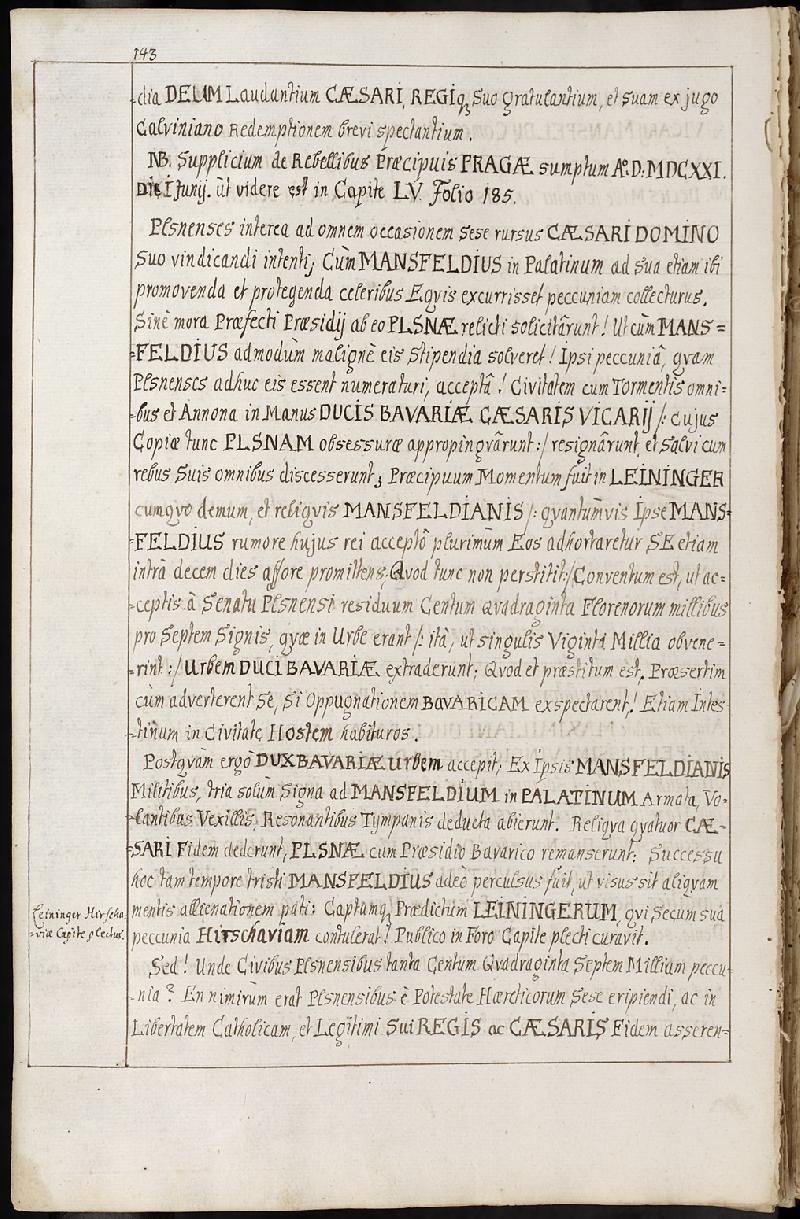 143
-dia DEUM Laudantium CÆSARI, REGIq, Suo gratulantium, et Suam ex jugo
Calviniano Redemptionem brevi spectantium.
NB. Supplicium de Rebellibus Præcipuis PRAGÆ sumptum Aº: D: MDCXXI.
Die I Junij. ut videre est in Capite LV. Folio 185.
Plsnenses interea ad omnem occasionem Sese rursus CÆSARI DOMINO
Suo vindicandi intenti; Cum MANSFELDIUS in Palatinum ad Sua etiam ibi
promovenda et protegenda celeribus Equis excurrisset peccuniam collecturus.
Sine mora Præfecti Præsidij ab eo PLSNÆ relicti solicitârunt! Ut cum MANS=
=FELDIUS admodum malignè eis Stipendia solveret! Ipsi peccuniâ, quam
Plsnenses adhuc eis essent numeraturi, acceptâ! Civitatem cum Tormentis omni-
-bus et Annona in Manus DUCIS BAVARIÆ CÆSARIS VICARIJ /: Cujus
Copiæ tunc PLSNAM obsessuræ appropinqvârunt :/ resignârunt, et Salvi cum
rebus Suis omnibus discesserunt; Præcipuum Momentum fuit in LEININGER
cumqvo demum, et reliqvis MANSFELDIANIS /: qvantumvis Ipse MANS=
=FELDIUS rumore hujus rei acceptô plurimum Eos adhortaretur SE etiam
intrâ decem dies affore promittens. Qvod tunc non perstitit :/ Conventum est, ut ac=
=ceptis â Senatu Plsnensi residuum Centum Qvadraginta Florenorum millibus
pro Septem Signis, qvæ in Urbe erant /: itâ, ut singulis Viginti Millia obvene-
-rint :/ Urbem DUCI BAVARIÆ extraderunt; Qvod et præstitum est. Præsertim
cum adverterent Se, Si Oppugnationem BAVARICAM exspectarent! Etiam Intes-
-tinum in Civitate Hostem habituros.
Postqvam ergò DUX BAVARIÆ Urbem accepit; Ex Ipsis MANSFELDIANIS
Militibus, tria solum Signa ad MANSFELDIUM in PALATINUM Armata, Vo-
-lantibus Vexillis, Resonantibus Tympanis deducta abierunt. Reliqva qvatuor CÆ-
-SARI Fidem dederunt, PLSNÆ cum Præsidio Bavarico remanserunt: Successu
hoc tam tempore tristi MANSFELDIUS adeò perculsus fuit, ut visus sit aliqvam
mentis allienationem pati; Captumq, Prædictum LEININGERUM, qvi Secum sua
peccunia Hirschaviam contulerat! Publico in Foro Capite plecti curavit.
Leininger Hirscha
-viæ Capite plectus.
Sed! Unde Civibus Plsnensibus tanta Centum Qvadraginta Septem Millium peccu-
-nia? En nimirum erat Plsnensibus è Potestate Hæreticorum Sese eripiendi, ac in
Libertatem Catholicam, et Legitimi Sui REGIS ac CÆSARIS Fidem asseren=